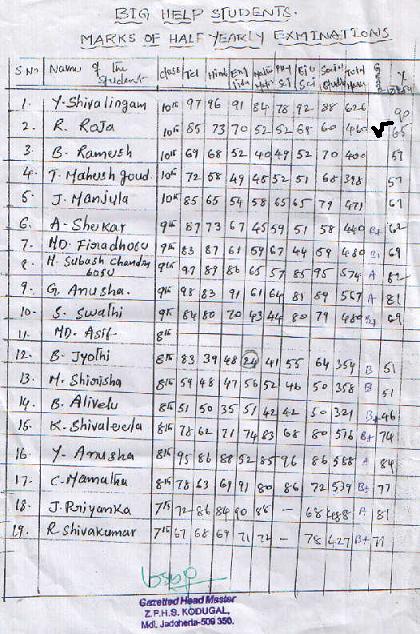 BIG HELP STUDENTS.
MARKS OF HALF YEARLY EXMINATIONS
S No Name of the Student class Tel Hindi Eng Maths Phy Sci Bio Sci Social Total %
1. Y. Shivalingam 10th 97 96 91 84 78 92 88 626 90
2. R. Raja 10th 85 73 70 52 52 68 60 460 65
3. B. Ramesh 10th 69 68 52 40 49 52 70 400 57
4. T. Mahesh goud 10th 72 58 49 48 52 51 68 398 57
5. J. Manjula 10th 85 65 54 58 65 65 79 471 67
6. A. Shekar 9th 87 73 67 45 59 51 58 440 B+ 62
7. MD. 9th 83 87 61 59 67 44 59 480 B+ 69
8. H. Subash Chandra bosu 9th 97 89 86 65 57 85 95 574 A 82
9. G. Anusha. 9th 98 83 91 61 64 81 89 567 A 81
10. S. Swathi 9th 84 80 70 43 44 80 79 480 B+ 69
11. MD. Asif 8th
12. B. Jyothi 8th 83 39 48 24 41 55 64 354 B 51
13. M. Shirisha 8th 59 48 47 56 52 46 50 358 B 51
14. B. Alivelu 8th 51 50 35 51 42 42 50 321 B+ 46
15. K. Shivaleela 8th 78 62 71 74 83 68 80 516 B+ 74
16. Y. Anusha 8th 95 86 88 52 85 96 86 588 A 84
17. C. Mamatha 8th 78 63 69 91 80 86 72 539 B+ 77
18. J. Priyanka 7th 72 86 84 90 88 - 68 488 A 81
19. R. Shivakumar 7th 67 68 69 71 72 - 78 427 B+ 71
Gazetted Head Master
Z.P.H.S. KODUGAL,
Mdl. Jadcherla-509 350.